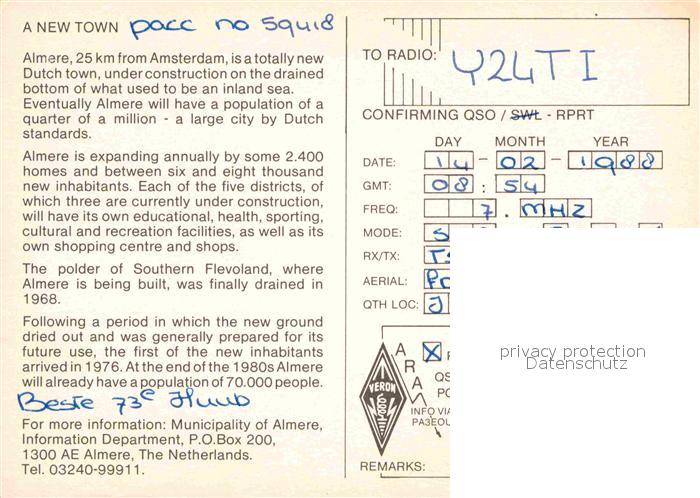 A NEW TOWN pacc no 59418
Almere, 25 km from Amsterdam, is a totally new
Dutch town, under construction on the drained
bottom of what used to be an inland sea.
Eventually Almere will have a population of a
quarter of a million - a large city by Dutch
standards.
Almere is expanding annually by some 2.400
homes and between six and eight thousand
new inhabitants. Each of the five districts, of
which three are currently under construction,
will have its own educational, health, sporting,
cultural and recreation facilities, as well as its
own shopping centre and shops.
The polder of Southern Flevoland, where
Almere is being built, was finally drained in
1968.
Following a period in which the new ground
dried out and was generally prepared for its
future use, the first of the new inhabitants
arrived in 1976. At the end of the 1980s Almere
will already have a population of 70.000 people.
Beste 73e Huub
For more information: Municipality of Almere,
Information Department, P.O.Box 200,
1300 AE Almere, The Netherlands.
Tel. 03240-99911.
TO RADIO: Y24TI
CONFIRMING QSO / SWL - RPRT
DAY MONTH YEAR
DATE: 14-02-1988
GMT: 08:54
FREQ: 7. MHZ
MODE: S
RX/TX: T
AERIAL:
QTH LOC: J
ARA
X
VERON
QS
PO
INFO VIA
PA3EOU
REMARKS:
privacy protection
Datenschutz